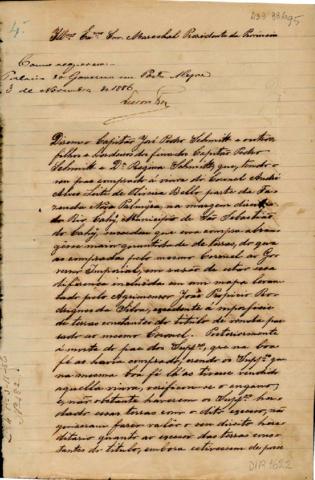 4.
Illmo Exmo Snr. Marechal Presidente da Provincia
Como requerem.
Palacio do Governo em Porto Alegre
3 de Novembro de 1886
Dizem o Capitão José Pedro Schmitt e outros,
filhos e herdeiros dos finados Capitão Pedro
Schmitt e D. Regina Schmitt, que, tendo o
seu pae comprado á viuva do Coronel André
Leite de Oliveira Bello, parte da Fa-
zenda Nova Palmyra, na margem direita
do Rio Cahy, Municipio de São Sebastião
do Cahy, succedeu que essa compra abran-
gesse maior quantidade de terras, do que
as compradas pelo mesmo Coronel ao Go-
verno Imperial, em razão de estar essa
differença incluida em um mappa levan-
tado pelo Agrimensor João Propicio Ro-
drigues da Silva, excedente á superficie
de terras constantes do titulo de venda pas-
sado ao mesmo Coronel. Posteriormente
á morte do pae dos Suppes, que na boa
fé as havia comprado, sendo os Suppes que
na mesma boa fé lh'as tivesse vendido
aquella viuva, verificou-se o engano;
e, não obstante haverem os Suppes her-
dado essas terras com o dito excesso, não
quizeram fazer valer o seu direito here-
ditario quanto ao excesso das terras cons-
tantes do titulo, embora estivessem de posse
DIR 1622